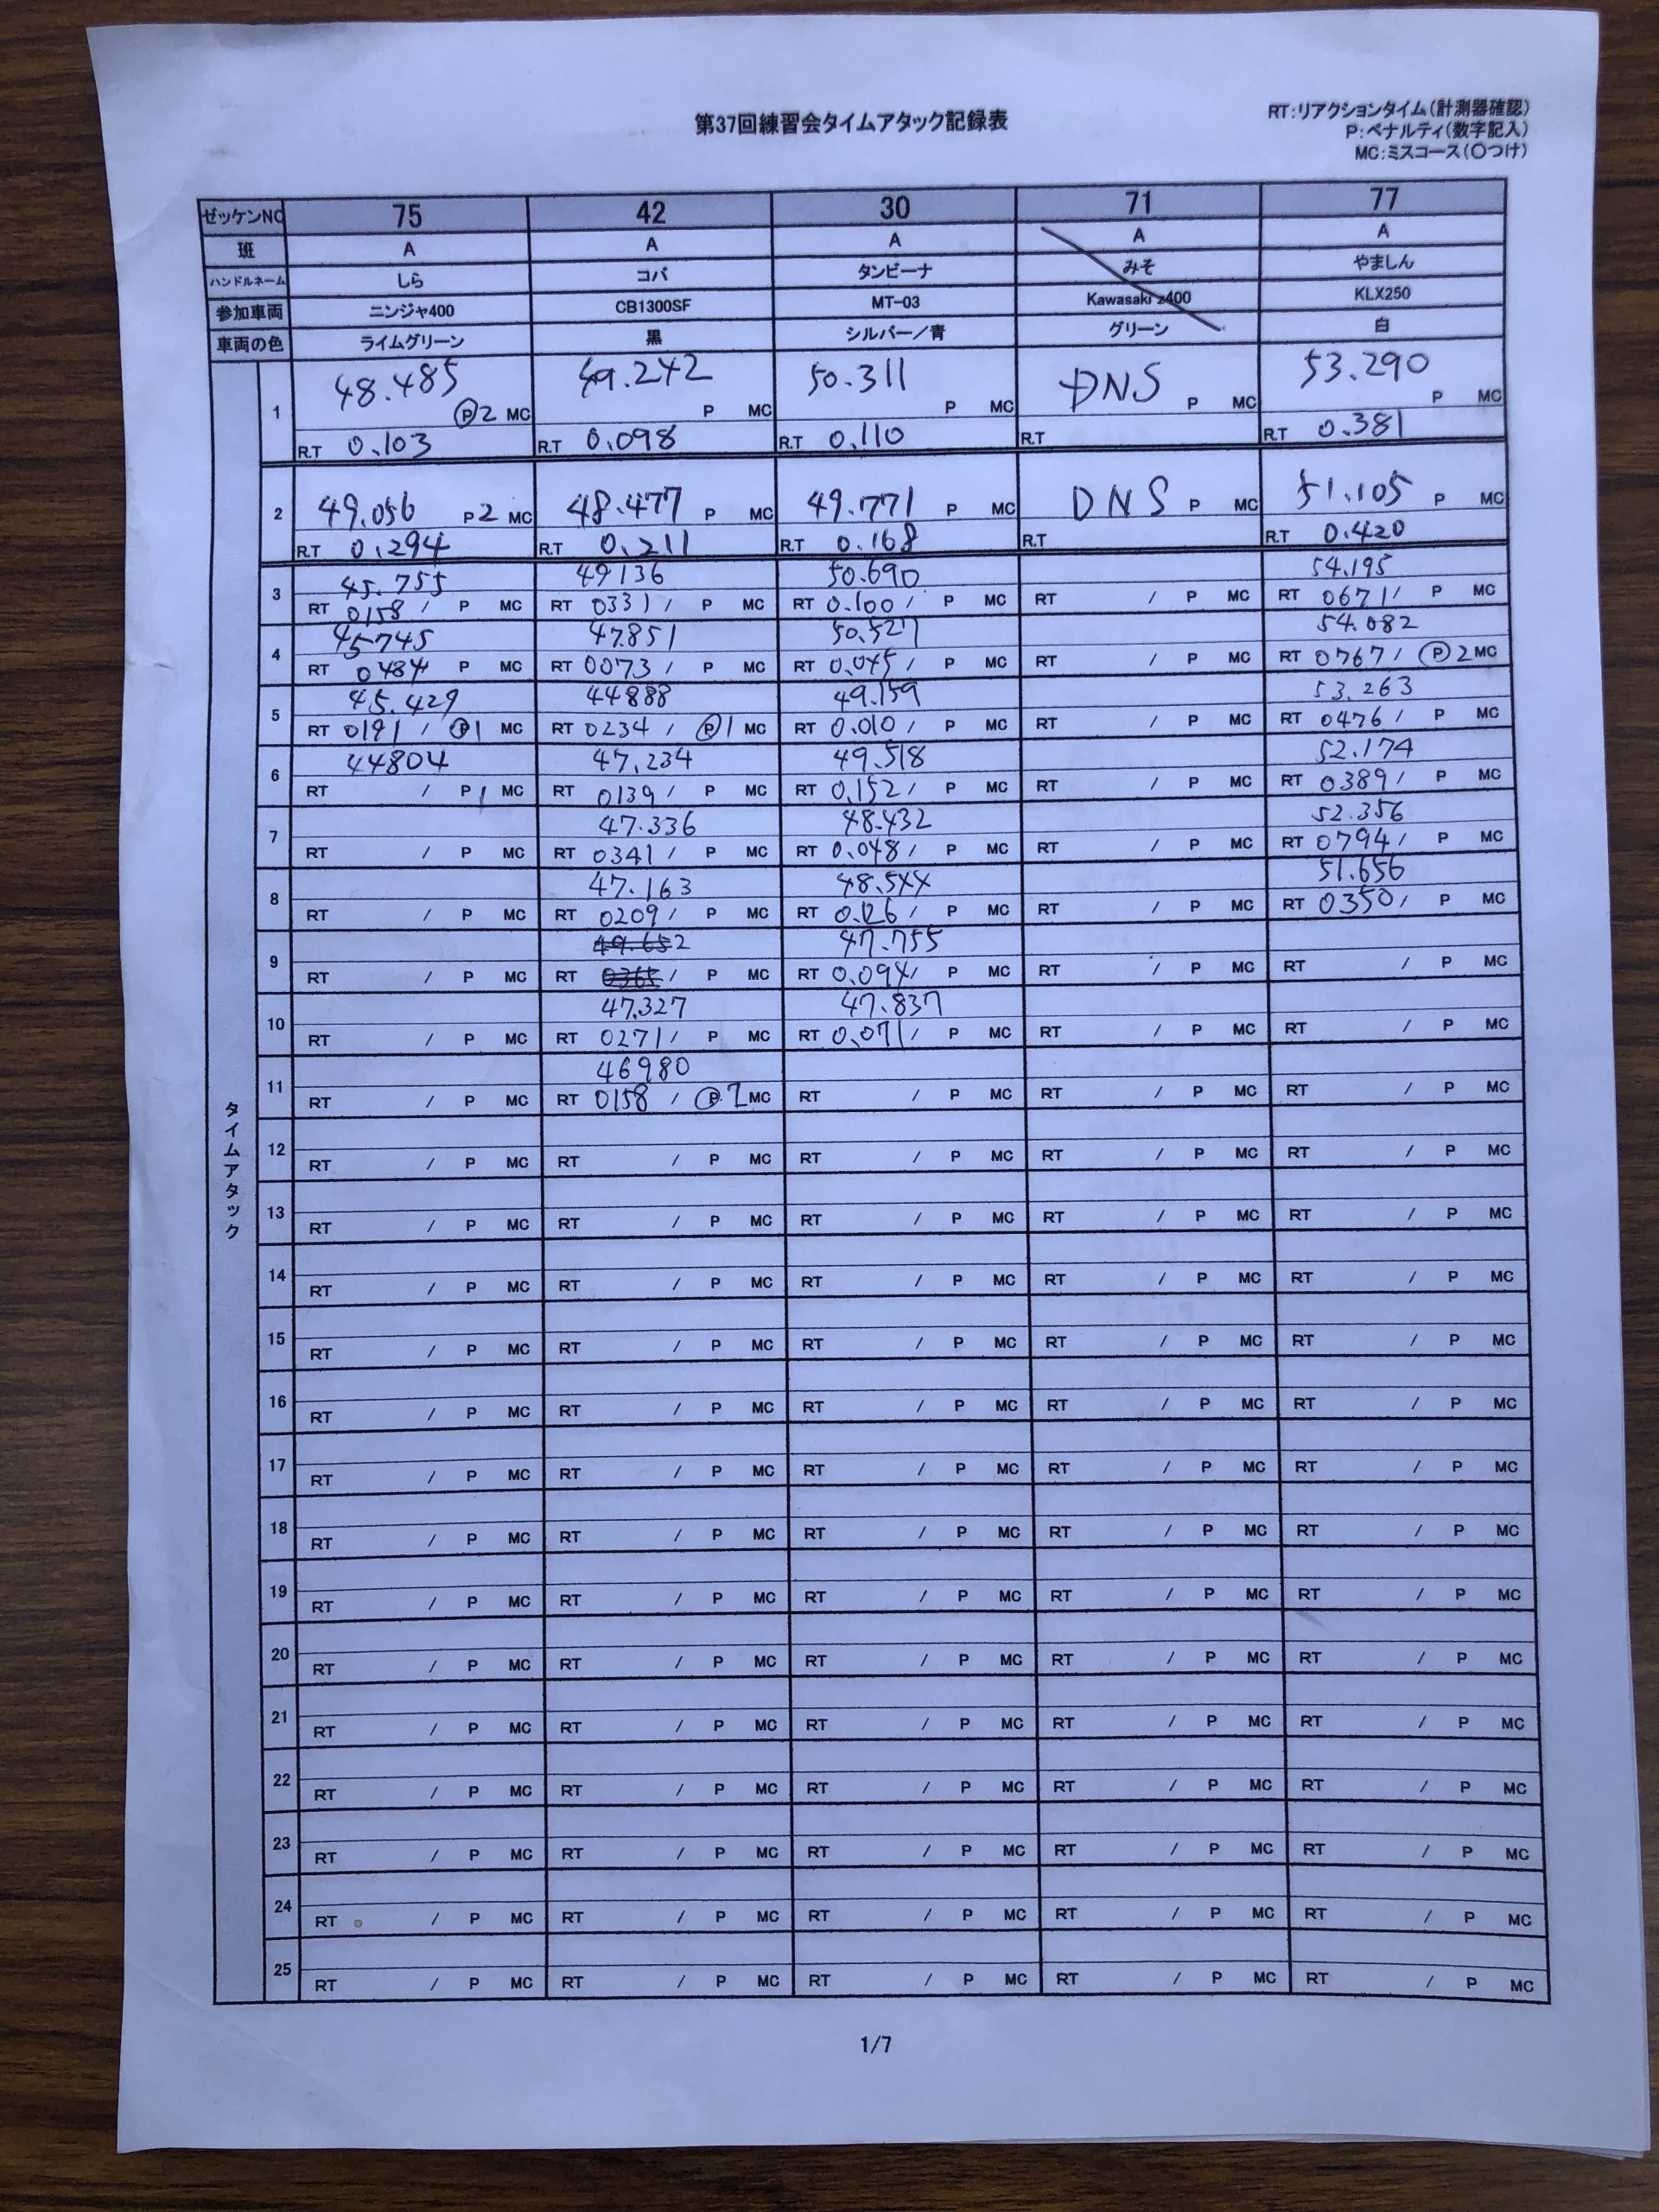 第37回練習会タイムアタック記録表
RT:リアクションタイム(計測器確認)
P:ペナルティ(数字記入)
MC:ミスコース(〇つけ)
ゼッケンNO 75 42 30 71 77
班 A A A A A
ハンドルネーム しら コバ タンビーナ みそ やましん
参加車両 ニンジャ400 CB1300SF MT-03 Kawasaki z400 KLX250
車両の色 ライムグリーン 黒 シルバー/青 グリーン 白
タイムアタック
1 48.485 P2 MC 49.242 P MC 50.311 P MC DNS P MC 53.290 P MC
R.T 0.103 R.T 0.098 R.T 0.110 R.T R.T 0.381
2 49.056 P2 MC 48.477 P MC 49.771 P MC DNS P MC 51.105 P MC
R.T 0.294 R.T 0.211 R.T 0.168 R.T R.T 0.420
3 45.755 49136 50.690 54.195
RT 0158 / P MC RT 0331 / P MC RT 0.100 / P MC RT / P MC RT 0671 / P MC
4 45745 47.851 50.527 54.082
RT 0484 P MC RT 0073 / P MC RT 0.045 / P MC RT / P MC RT 0767 / P2 MC
5 45.429 44888 49.159 53.263
RT 0191 / P1 MC RT 0234 / P1 MC RT 0.010 / P MC RT / P MC RT 0476 / P MC
6 44804 47.234 49.518 52.174
RT / P1 MC RT 0139 / P MC RT 0.152 / P MC RT / P MC RT 0389 / P MC
7 47.336 48.432 52.356
RT / P MC RT 0341 / P MC RT 0.048 / P MC RT / P MC RT 0794 / P MC
8 47.163 48.544 51.656
RT / P MC RT 0209 / P MC RT 0.126 / P MC RT / P MC RT 0350 / P MC
9 49.652 47.755
RT / P MC RT 0365 / P MC RT 0.094 / P MC RT / P MC RT / P MC
10 47.327 47.837
RT / P MC RT 0271 / P MC RT 0.071 / P MC RT / P MC RT / P MC
11 46980
RT / P MC RT 0158 / P MC RT / P MC RT / P MC RT / P MC
12 RT / P MC RT / P MC RT / P MC RT / P MC RT / P MC
13 RT / P MC RT / P MC RT / P MC RT / P MC RT / P MC
14 RT / P MC RT / P MC RT / P MC RT / P MC RT / P MC
15 RT / P MC RT / P MC RT / P MC RT / P MC RT / P MC
16 RT / P MC RT / P MC RT / P MC RT / P MC RT / P MC
17 RT / P MC RT / P MC RT / P MC RT / P MC RT / P MC
18 RT / P MC RT / P MC RT / P MC RT / P MC RT / P MC
19 RT / P MC RT / P MC RT / P MC RT / P MC RT / P MC
20 RT / P MC RT / P MC RT / P MC RT / P MC RT / P MC
21 RT / P MC RT / P MC RT / P MC RT / P MC RT / P MC
22 RT / P MC RT / P MC RT / P MC RT / P MC RT / P MC
23 RT / P MC RT / P MC RT / P MC RT / P MC RT / P MC
24 RT / P MC RT / P MC RT / P MC RT / P MC RT / P MC
25 RT / P MC RT / P MC RT / P MC RT / P MC RT / P MC
1/7